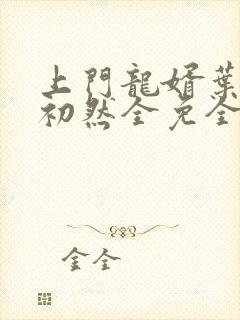 上門龍婿葉
初然全免全
金全